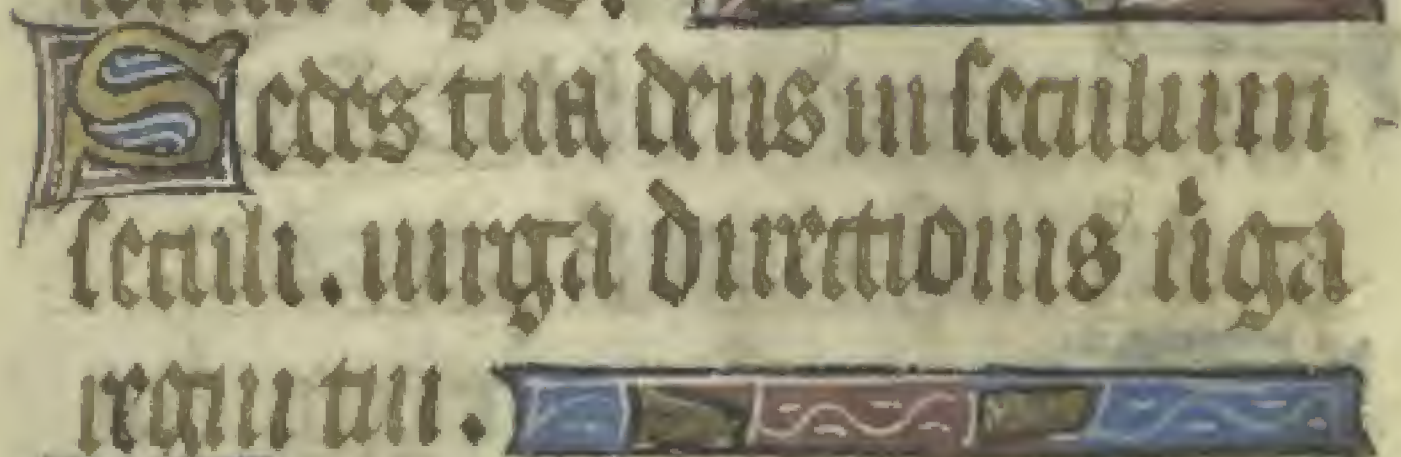 Sedes tua deus in seculum
seculi. uirga directionis uiga
regni tui.